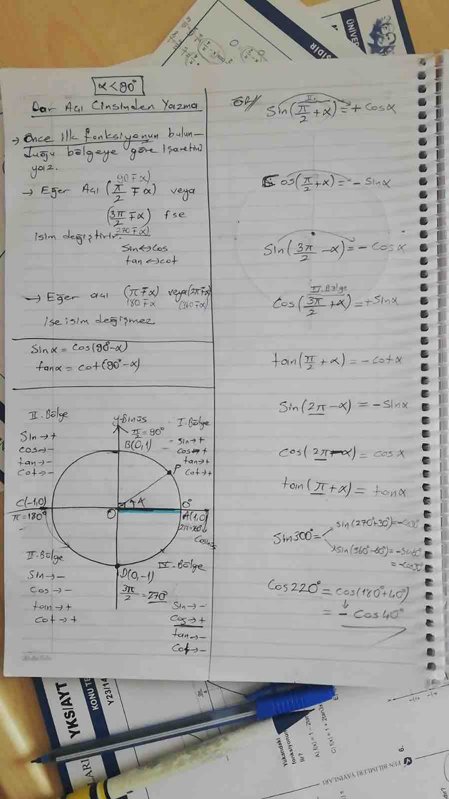 α<90°
Dar Açı Cinsinden Yazma
→ Önce ilk fonksiyonun bulun-
duğu bölgeye göre işaretini
yaz.
(90∓α)
→ Eğer Açı (π/2 ∓ α) veya
(3π/2 ∓ α) ise
(270∓α)
isim değiştirir.
Sin↔Cos
tan↔cot
→ Eğer açı (π∓α) veya (2π∓α)
180∓α (360∓α)
ise isim değişmez.
Sinα = Cos(90-α)
tanα = cot(90-α)
II. Bölge
Sin→+
cos→-
tan→-
Cot→-
y-Sinüs
π/2=90°
B(0,1)
I. Bölge
-sin→+
cos→+
tan→+
cot→+
P
α
O
C(-1,0)
π=180°
0°
A(1,0)
III. Bölge
Sin→-
Cos→-
tan→+
Cot→+
D(0,-1)
3π/2=270°
IV. Bölge
Sin→-
Cos→+
tan→-
Cot→-
Sin(π/2+α)=+Cosα
Cos(π/2+α)=-Sinα
Sin(3π/2-α)=-Cosα
IV. Bölge
Cos(3π/2+α)=+Sinα
tan(π/2+α)=-Cotα
Sin(2π-α)=-Sinα
Cos(2π-α)=cosα
tan(π+α)=tanα
Sin300°=
sin(270+30)=-cos30°
sin(360-60)=-sin60°
Cos220°=cos(180°+40°)
=-Cos40°
YKS/AYT